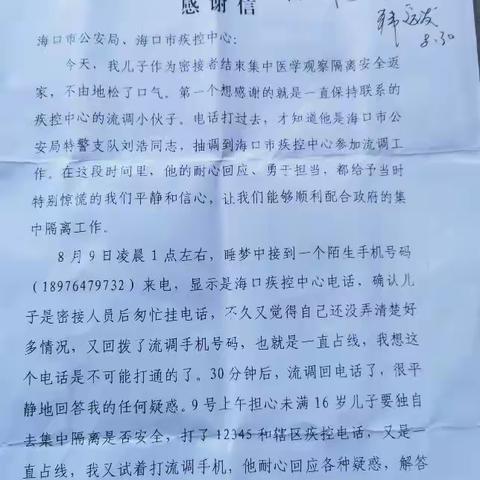 感谢信
8.30
海口市公安局、海口市疾控中心:
今天，我儿子作为密接者结束集中医学观察隔离安全返
家，不由地松了口气。第一个想感谢的就是一直保持联系的
疾控中心的流调小伙子。电话打过去，才知道他是海口市公
安局特警支队刘浩同志，抽调到海口市疾控中心参加流调工
作。在这段时间里，他的耐心回应、勇于担当，都给予当时
特别惊慌的我们平静和信心，让我们能够顺利配合政府的集
中隔离工作。
8月9日凌晨1点左右，睡梦中接到一个陌生手机号码
（18976479732）来电，显示是海口疾控中心电话，确认儿
子是密接人员后匆忙挂电话，不久又觉得自己还没弄清楚好
多情况，又回拨了流调手机号码，也就是一直占线，我想这
个电话是不可能打通的了。30分钟后，流调回电话了，很平
静地回答我的任何疑惑。9号上午担心未满16岁儿子要独自
去集中隔离是否安全，打了12345和辖区疾控电话，又是一
直占线，我又试着打流调手机，他耐心回应各种疑惑，解答